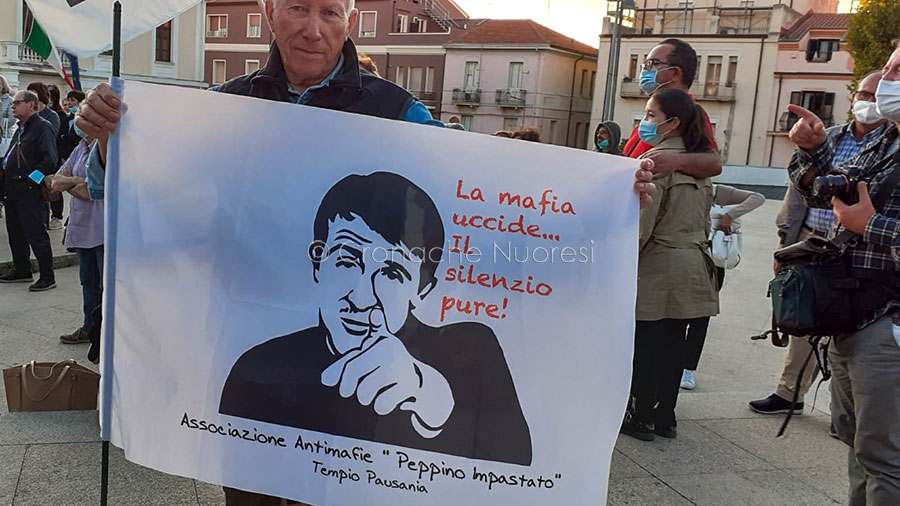 La mafia
uccide...
Il
silenzio
pure!
© Cronache Nuoresi
Associazione Antimafie "Peppino Impastato"
Tempio Pausania